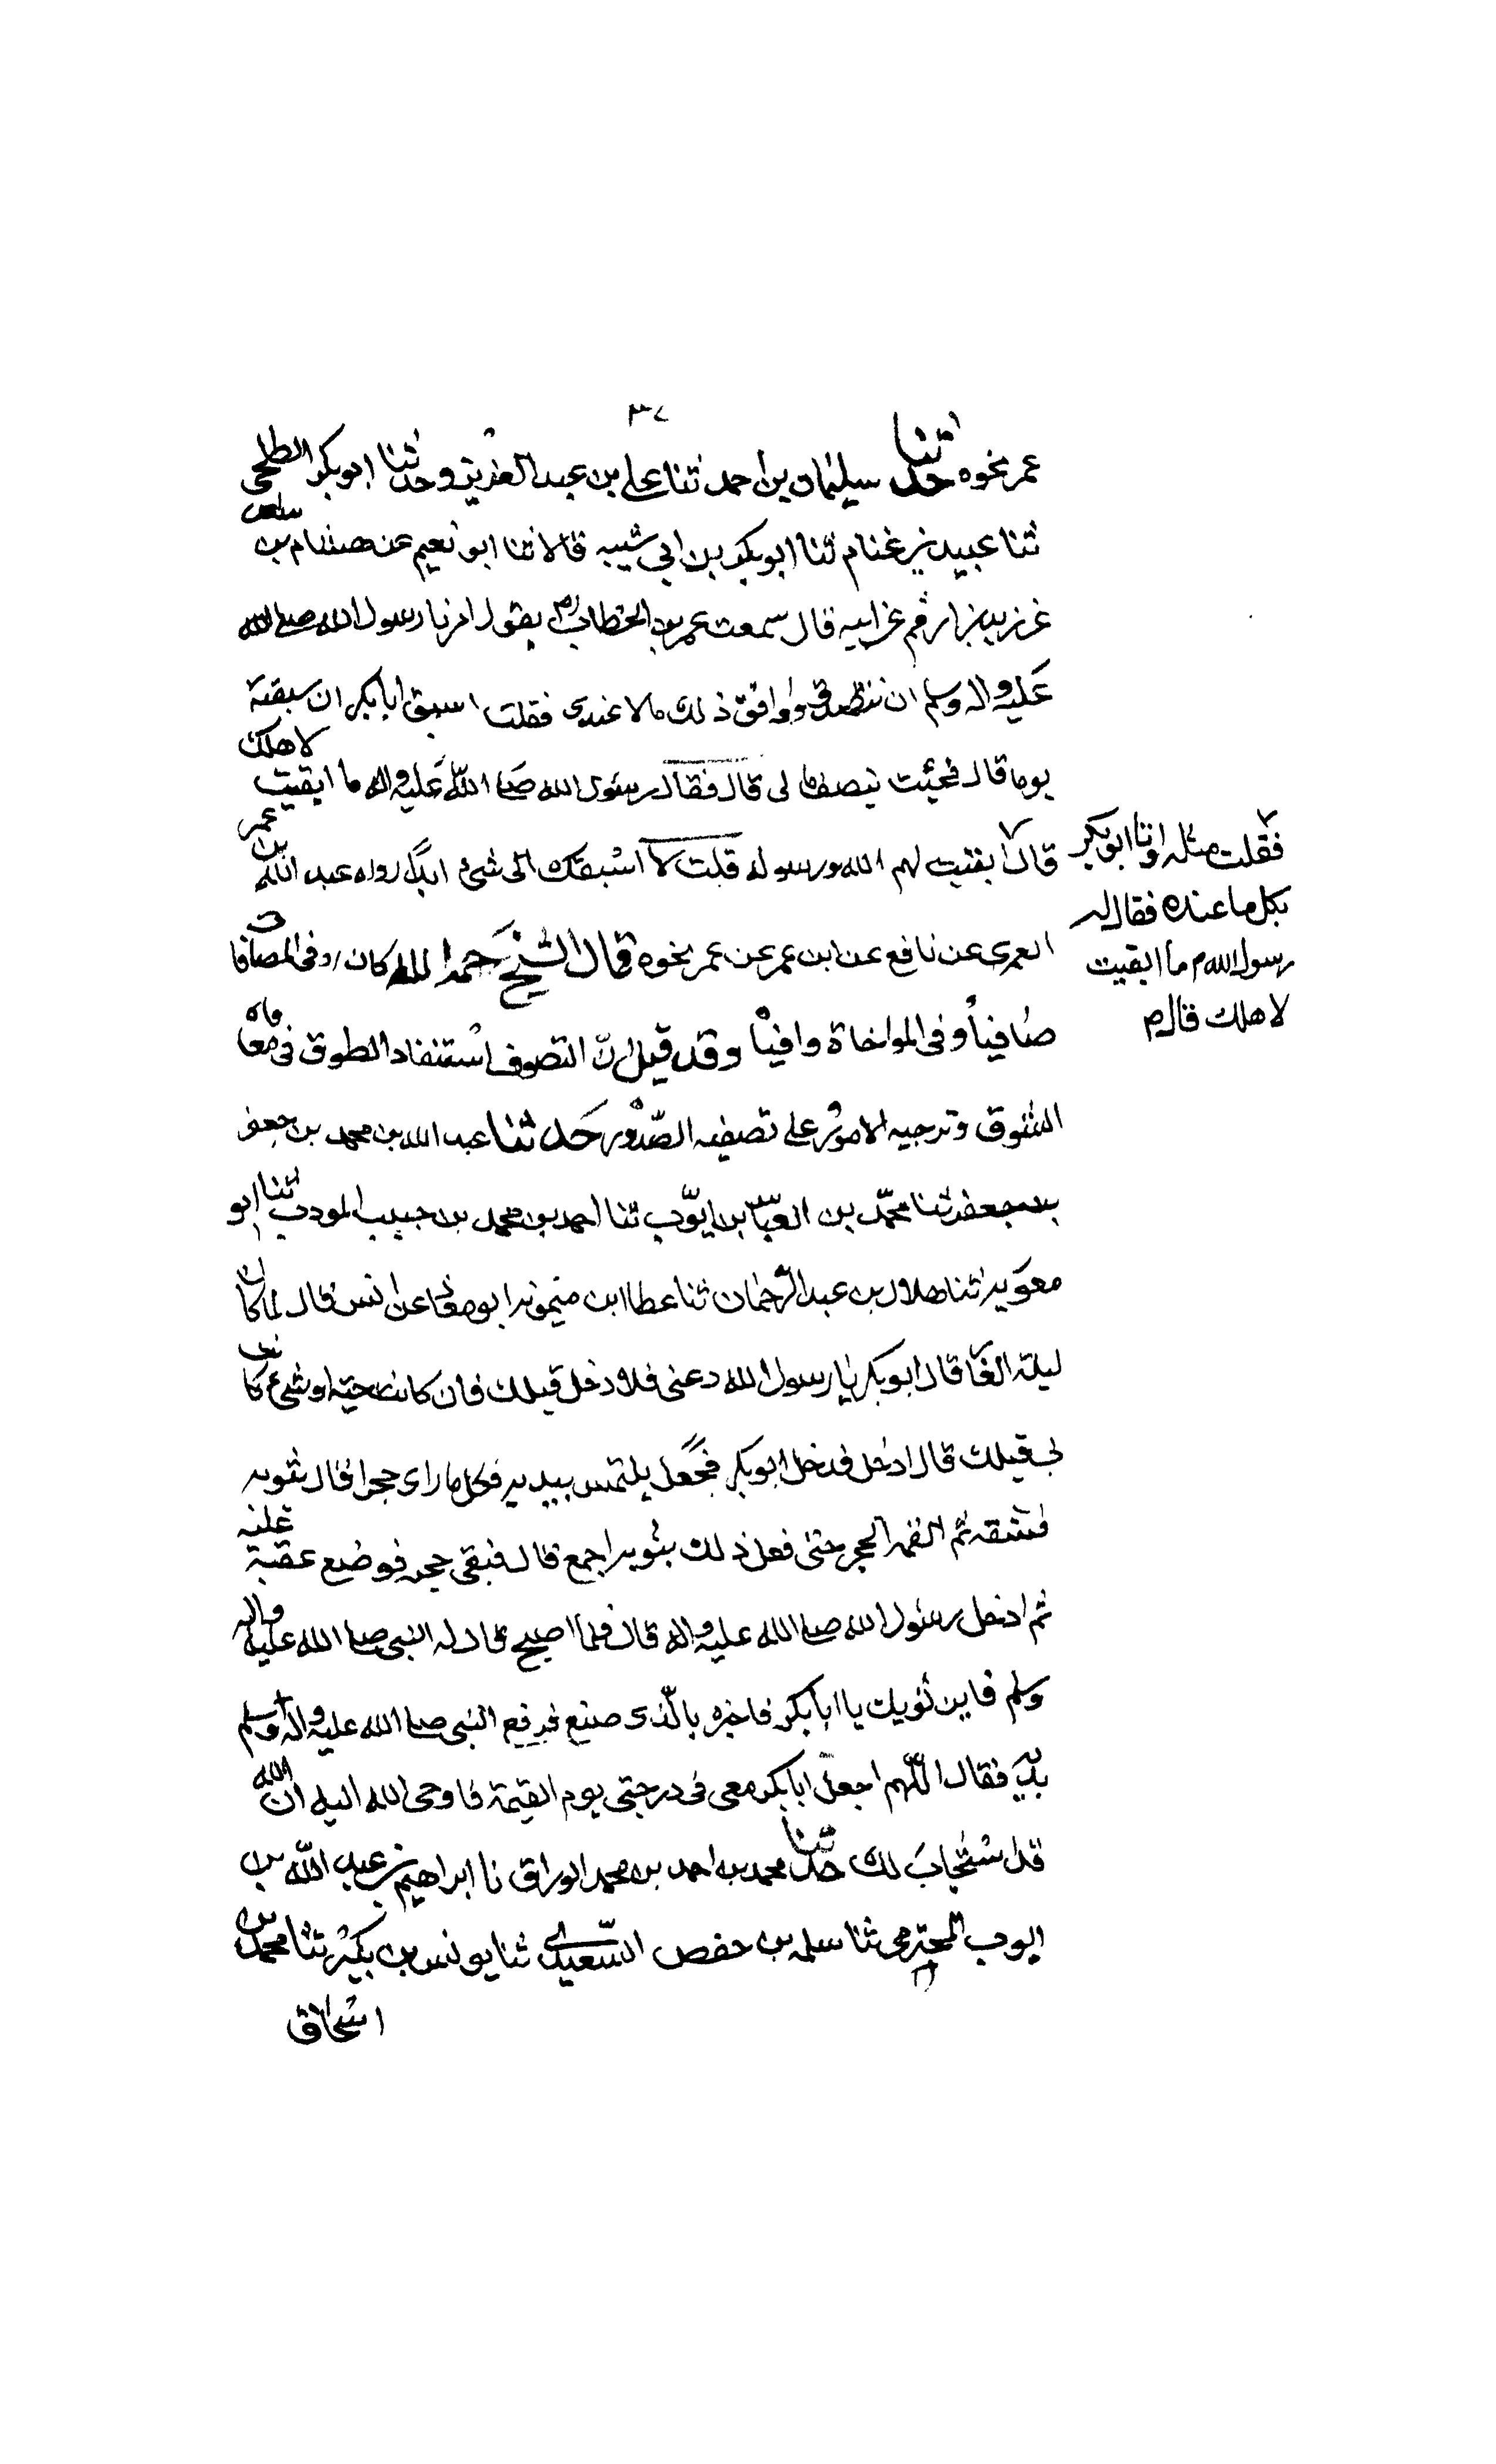 ٣٧
عمر نحوه حدثنا سليمان بن احمد ثنا علي بن عبد العزيز وحدثنا ابو بكر الطلحي
ثنا عبيد بن غنام ثنا ابو بكر بن ابي شيبه قالا ثنا ابو نعيم عن هشام بن سعد
عن زيد بن ارقم عن ابيه قال سمعت عمر بن الخطاب يقول امرنا رسول الله صلى الله
عليه واله وسلم ان نتصدق ووافق ذلك مالا عندى فقلت اسبق ابا بكر ان سبقته
يوما قال فجئت بنصف مالى قال فقال رسول الله صلى الله عليه واله ما ابقيت لاهلك
فقلت مثله واتا ابو بكر
بكل ما عنده فقال له
رسول الله م ما ابقيت
لاهلك قال م
قال ابقيت لهم الله ورسوله قلت لا اسبقك الى شئ ابدا رواه عبد الله بن عمر
العمرى عن نافع عن ابن عمر عن عمر نحوه قال الشيخ رحمه الله كان وفى المصافات
صافيا وفى المواخاة وافيا وقد قيل ان التصوف استنفاد الطوق فى معاناه
الشوق وترجيه الامور على تصفيه الصدور حدثنا عبد الله بن محمد بن جعفر
بن جعفر ثنا محمد بن العباس بن ايوب ثنا احمد بن محمد بن حبيب المودب ثنا ابو
معويه ثنا هلال بن عبد الرحمان ثنا عطا ابن ميمونه ابو معاذ عن انس قال لما كان
ليلة الغار قال ابو بكر يا رسول الله دعنى فلادخل قبلك فان كانت حية او شئ كانت
لى قبلك قال ادخل فدخل ابو بكر فجعل يلتمس بيديه فكل ما راى جحرا قال بثوبه
فشقه ثم القمه الجحر حتى فعل ذلك بثوبه اجمع قال فبقى جحر فوضع عقبة عليه
ثم ادخل رسول الله صلى الله عليه واله قال فلما اصبح قال له النبى صلى الله عليه واله
وسلم فاين ثوبك يا ابا بكر فاخبره بالذى صنع فرفع النبى صلى الله عليه واله وسلم
يديه فقال اللهم اجعل ابا بكر معى فى درجتى يوم القيمة فاوحى الله اليه ان الله
قد استجاب لك حدثنا محمد بن احمد بن محمد الوراق نا ابراهيم بن عبد الله بن
ايوب المخرمى ثنا سلمه بن حفص السعيدى ثنا يونس بن بكير ثنا محمد بن
اسحاق